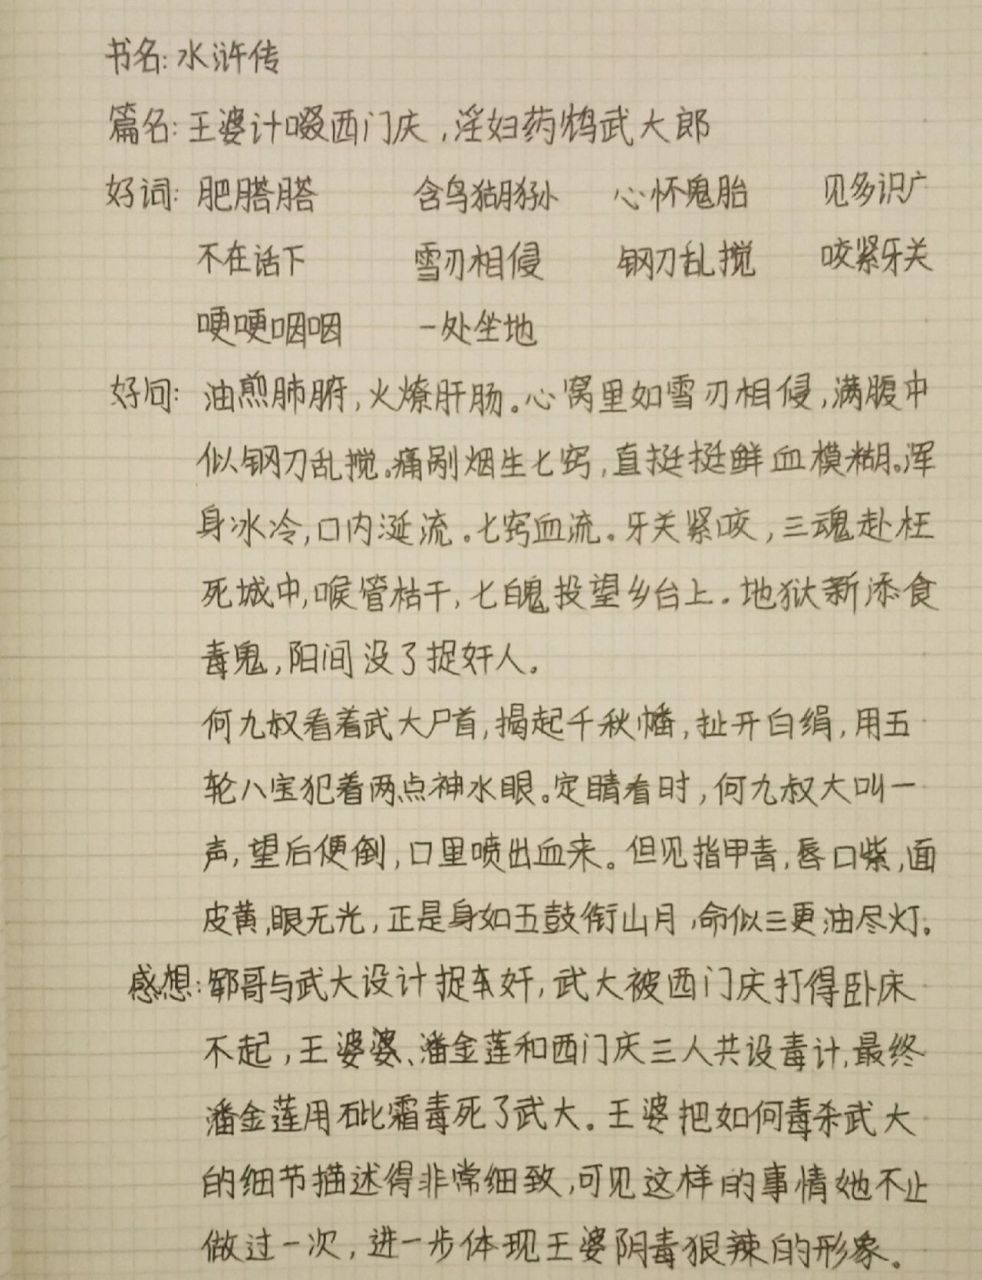 书名:水浒传
篇名:王婆计啜西门庆,淫妇药鸩武大郎
好词:肥搭搭 含鸟猢狲 心怀鬼胎 见多识广
不在话下 雪刃相侵 钢刀乱搅 咬紧牙关
哽哽咽咽 一处坐地
好句:油煎肺腑,火燎肝肠。心窝里如雪刃相侵,满腹中
似钢刀乱搅。痛剐烟生七窍,直挺挺鲜血模糊。浑
身冰冷,口内涎流。七窍血流。牙关紧咬,三魂赴枉
死城中,喉管枯干,七魄投望乡台上。地狱新添食
毒鬼,阳间没了捉奸人。
何九叔看着武大尸首,揭起千秋幡,扯开白绢,用五
轮八宝犯着两点神水眼。定睛看时,何九叔大叫一
声,望后便倒,口里喷出血来。但见指甲青,唇口紫,面
皮黄,眼无光,正是身如五鼓衔山月,命似三更油尽灯。
感想:郓哥与武大设计捉奸,武大被西门庆打得卧床
不起,王婆婆、潘金莲和西门庆三人共设毒计,最终
潘金莲用砒霜毒死了武大。王婆把如何毒杀武大
的细节描述得非常细致,可见这样的事情她不止
做过一次,进一步体现王婆阴毒狠辣的形象。